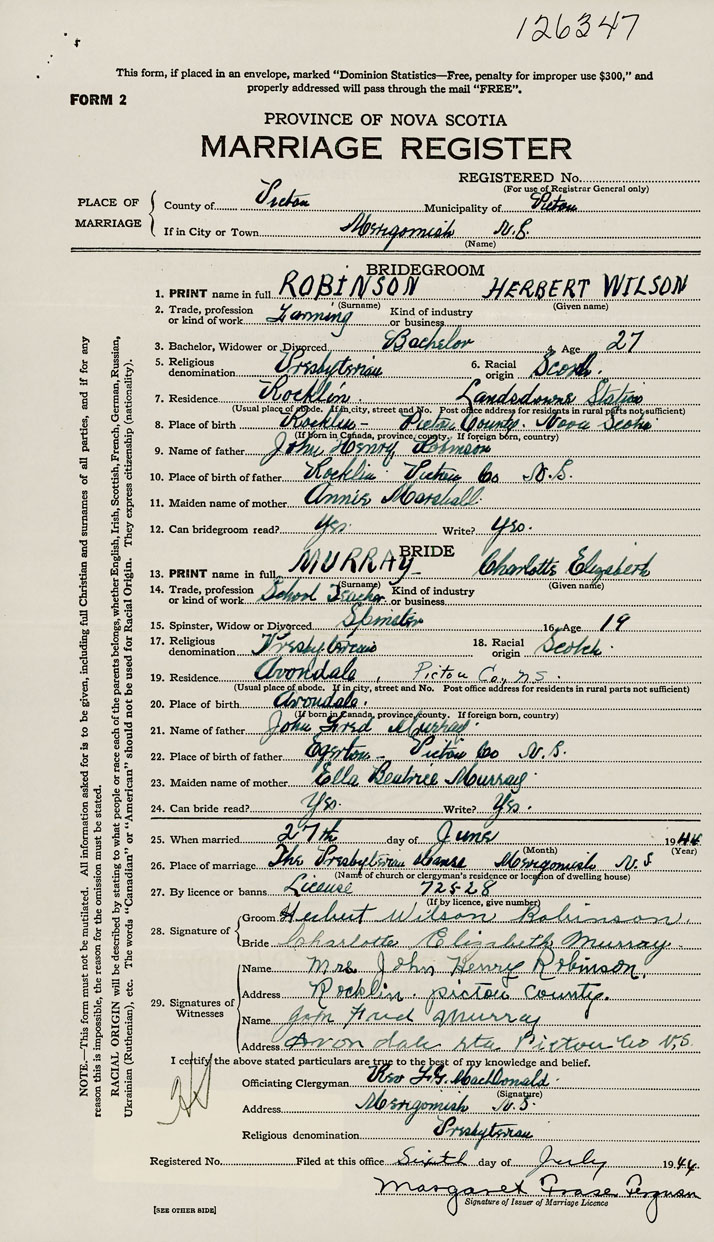 126347
This form, if placed in an envelope, marked “Dominion Statistics—Free, penalty for improper use $300,” and
properly addressed will pass through the mail “FREE”.
FORM 2
PROVINCE OF NOVA SCOTIA
MARRIAGE REGISTER
REGISTERED No.
(For use of Registrar General only)
PLACE OF MARRIAGE
County of Pictou Municipality of Pictou
If in City or Town Merigomish N.S.
(Name)
BRIDEGROOM
1. PRINT name in full ROBINSON HERBERT WILSON
(Surname) (Given name)
2. Trade, profession or kind of work Farming Kind of industry or business
3. Bachelor, Widower or Divorced Bachelor 4. Age 27
5. Religious denomination Presbyterian 6. Racial origin Scotch.
7. Residence Rocklin. Landsdowne Station
(Usual place of abode. If in city, street and No. Post office address for residents in rural parts not sufficient)
8. Place of birth Rocklin - Pictou County. Nova Scotia
(If born in Canada, province, county. If foreign born, country)
9. Name of father John Henry Robinson
10. Place of birth of father Rocklin Pictou Co N.S.
11. Maiden name of mother Annie Marshall.
12. Can bridegroom read? Yes. Write? Yes.
BRIDE
13. PRINT name in full MURRAY Charlotte Elizabeth
(Surname) (Given name)
14. Trade, profession or kind of work School Teacher. Kind of industry or business
15. Spinster, Widow or Divorced Spinster 16. Age 19
17. Religious denomination Presbyterian 18. Racial origin Scotch.
19. Residence Avondale, Pictou Co., N.S.
(Usual place of abode. If in city, street and No. Post office address for residents in rural parts not sufficient)
20. Place of birth Avondale.
(If born in Canada, province, county. If foreign born, country)
21. Name of father John Fred Murray
22. Place of birth of father Egerton - Pictou Co N.S.
23. Maiden name of mother Ella Beatrice Murray.
24. Can bride read? Yes. Write? Yes.
25. When married 27th day of June 1944
(Month) (Year)
26. Place of marriage The Presbyterian Manse Merigomish N.S
(Name of church or clergyman's residence or location of dwelling house)
27. By licence or banns License 72528
(If by licence, give number)
28. Signature of
Groom Herbert Wilson Robinson.
Bride Charlotte Elizabeth Murray.
29. Signatures of Witnesses
Name Mrs John Henry Robinson.
Address Rocklin. Pictou County.
Name John Fred Murray
Address Avondale Sta Pictou Co N.S.
I certify the above stated particulars are true to the best of my knowledge and belief.
Officiating Clergyman Rev MacDonald
(Signature)
Address Merigomish N.S.
Religious denomination Presbyterian
Registered No. Filed at this office Sixth day of July 1944
Margaret Ferguson
Signature of Issuer of Marriage Licence
[SEE OTHER SIDE]
NOTE.—This form must not be mutilated. All information asked for is to be given, including full Christian and surnames of all parties, and if for any
reason this is impossible, the reason for the omission must be stated.
RACIAL ORIGIN will be described by stating to what people or race each of the parents belongs, whether English, Irish, Scottish, French, German, Russian,
Ukrainian (Ruthenian), etc. The words “Canadian” or “American” should not be used for Racial Origin. They express citizenship (nationality).